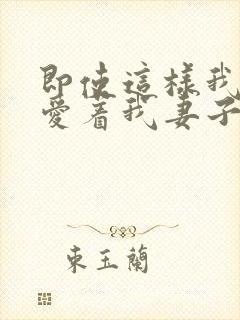 即使這樣我
愛着我妻子
東玉蘭